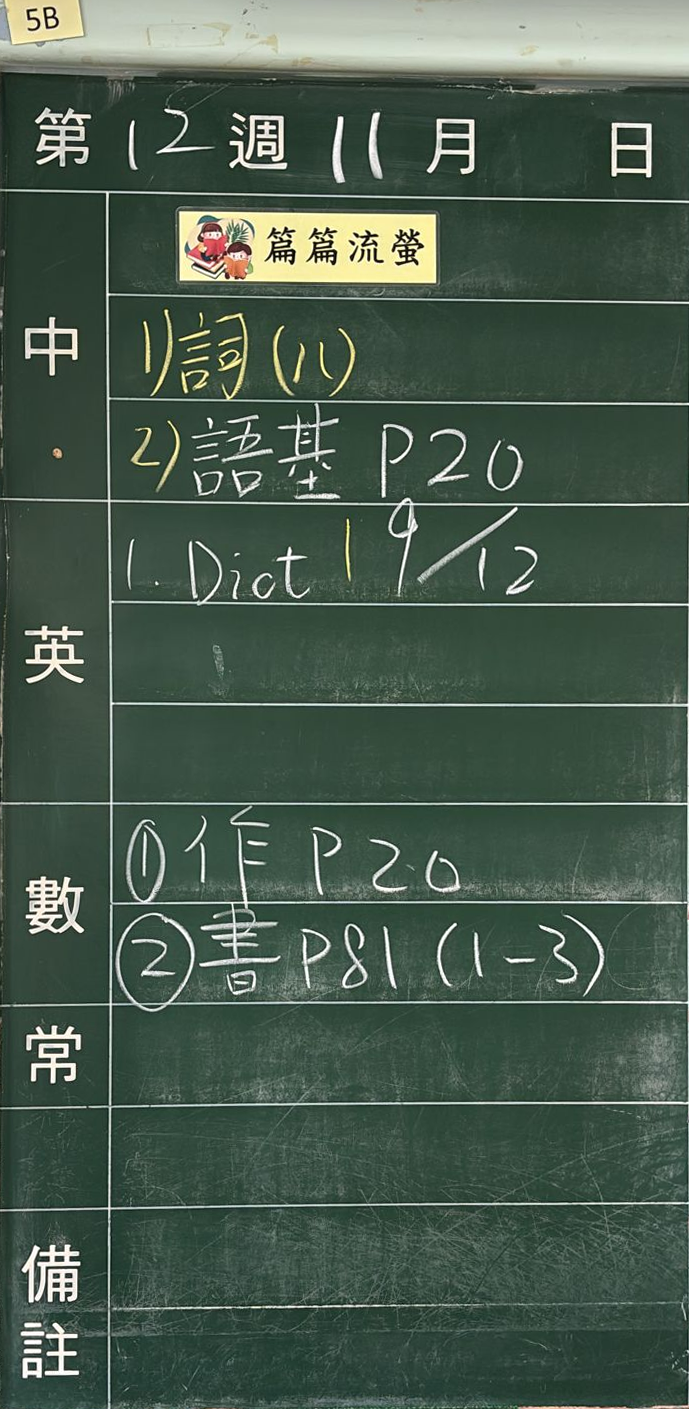 5B
第 12 週 11 月 日
篇篇流螢
中
1) 詞 (八)
2) 語基 P20
英
1. Dict 1 9/12
數
① 作 P20
② 書 P81 (1-3)
常
備註